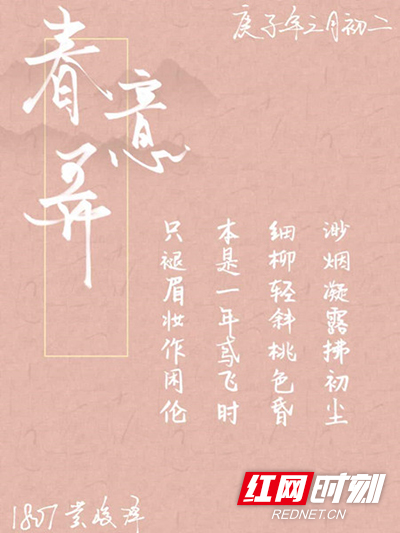 庚子年三月初二
春意弄
渺烟凝露拂初尘
细柳轻斜桃色昏
本是一年鸢飞时
只褪眉妆作困伦
1807 黄峻泽
红网时刻
REDNET.CN